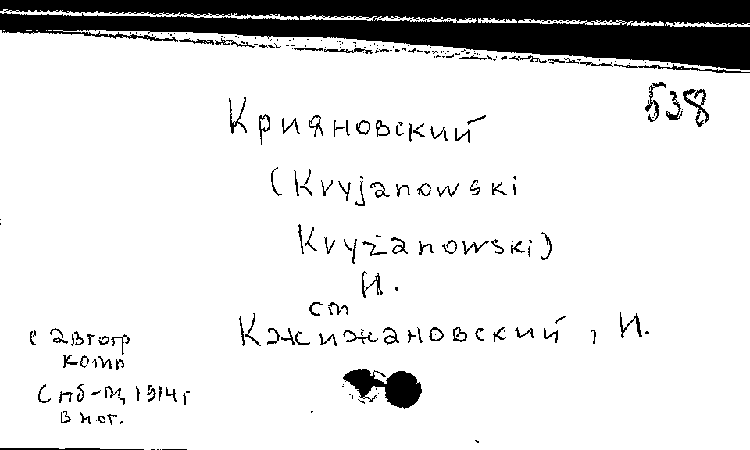 538
Крияновский
(Kryjanowski
Kryżanowski)
И.
ст
Кжижановский, И.
с автогр
комп
Спб-Щ 1914 г
в нот.